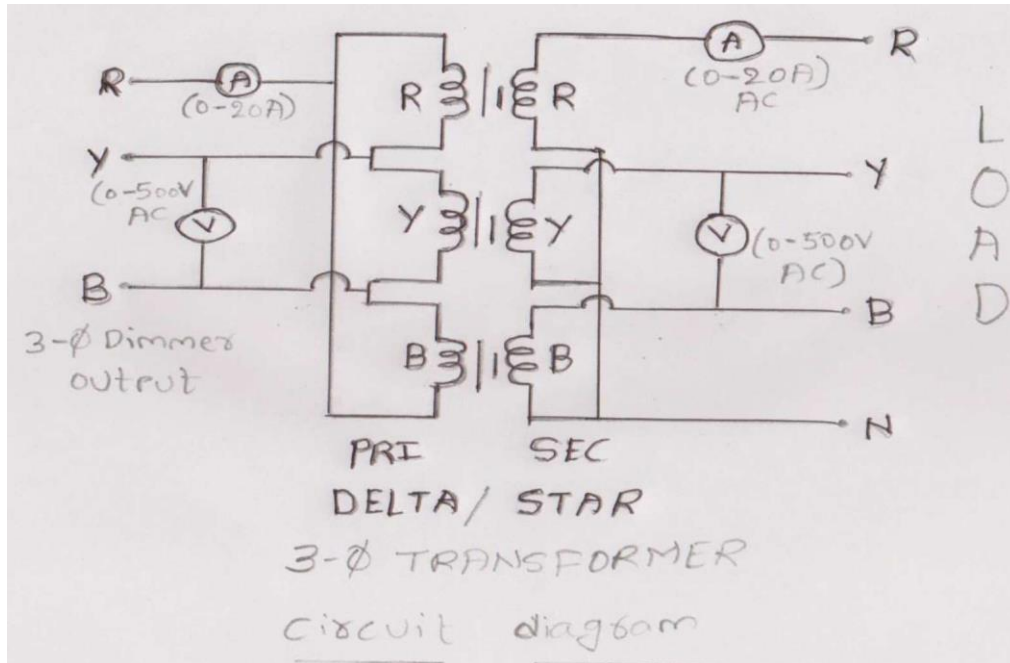 R A
(0-20A)
Y
(0-500V
AC
V
B
3-Ø Dimmer
output
R
Y
B
R
Y
B
A R
(0-20A)
AC
Y
V (0-500V
AC)
B
N
L
O
A
D
PRI SEC
DELTA/ STAR
3-Ø TRANSFORMER
Circuit diagram